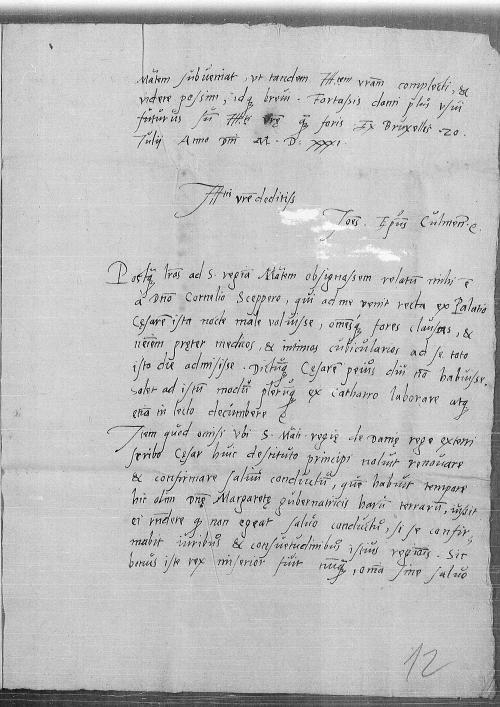 Mātem subveniat, ut tandem Mtem vrām complecti, &
videre possim, idq brevi. Fortassis domi plus usui
futurus su Mti vrę q foris. Ex Bruxellis 20.
Iulii Anno Dni M. D. XXXI.
Mti vre deditiss
Joēs. Epūs Culmen.
Postq lras ad S. regiā Mātem obsignassem relatū mihi ē
a Dno Cornelio Sceppero, qui ad me venit recta ex Palatio
Cesarē ista nocte male valuisse, omesq fores clausas, &
neīem preter medicos, & intimos cubicularios ad se toto
isto die admisisse. Cesarē peius diu nō habuisse.
Solet ad istū modū plerūq ex catharro laborare atq
etiā in lecto decumbere
Item quod omisi ubi S. Mati regię de Danię rege exteri
scribo Cesar huic destituto principi noluit renovare
& confirmare salvū conductū, que habuit tempore
hic olim Dnę Margaretę gubernatricis harū terrarū, iussit
ei rndere q non egeat salvo conductu, si se confir-
mabit iuribus & consuetudinibus istius regiōis. Sic
bonus iste rex miserior fuit nūq, oma sine salvo
12